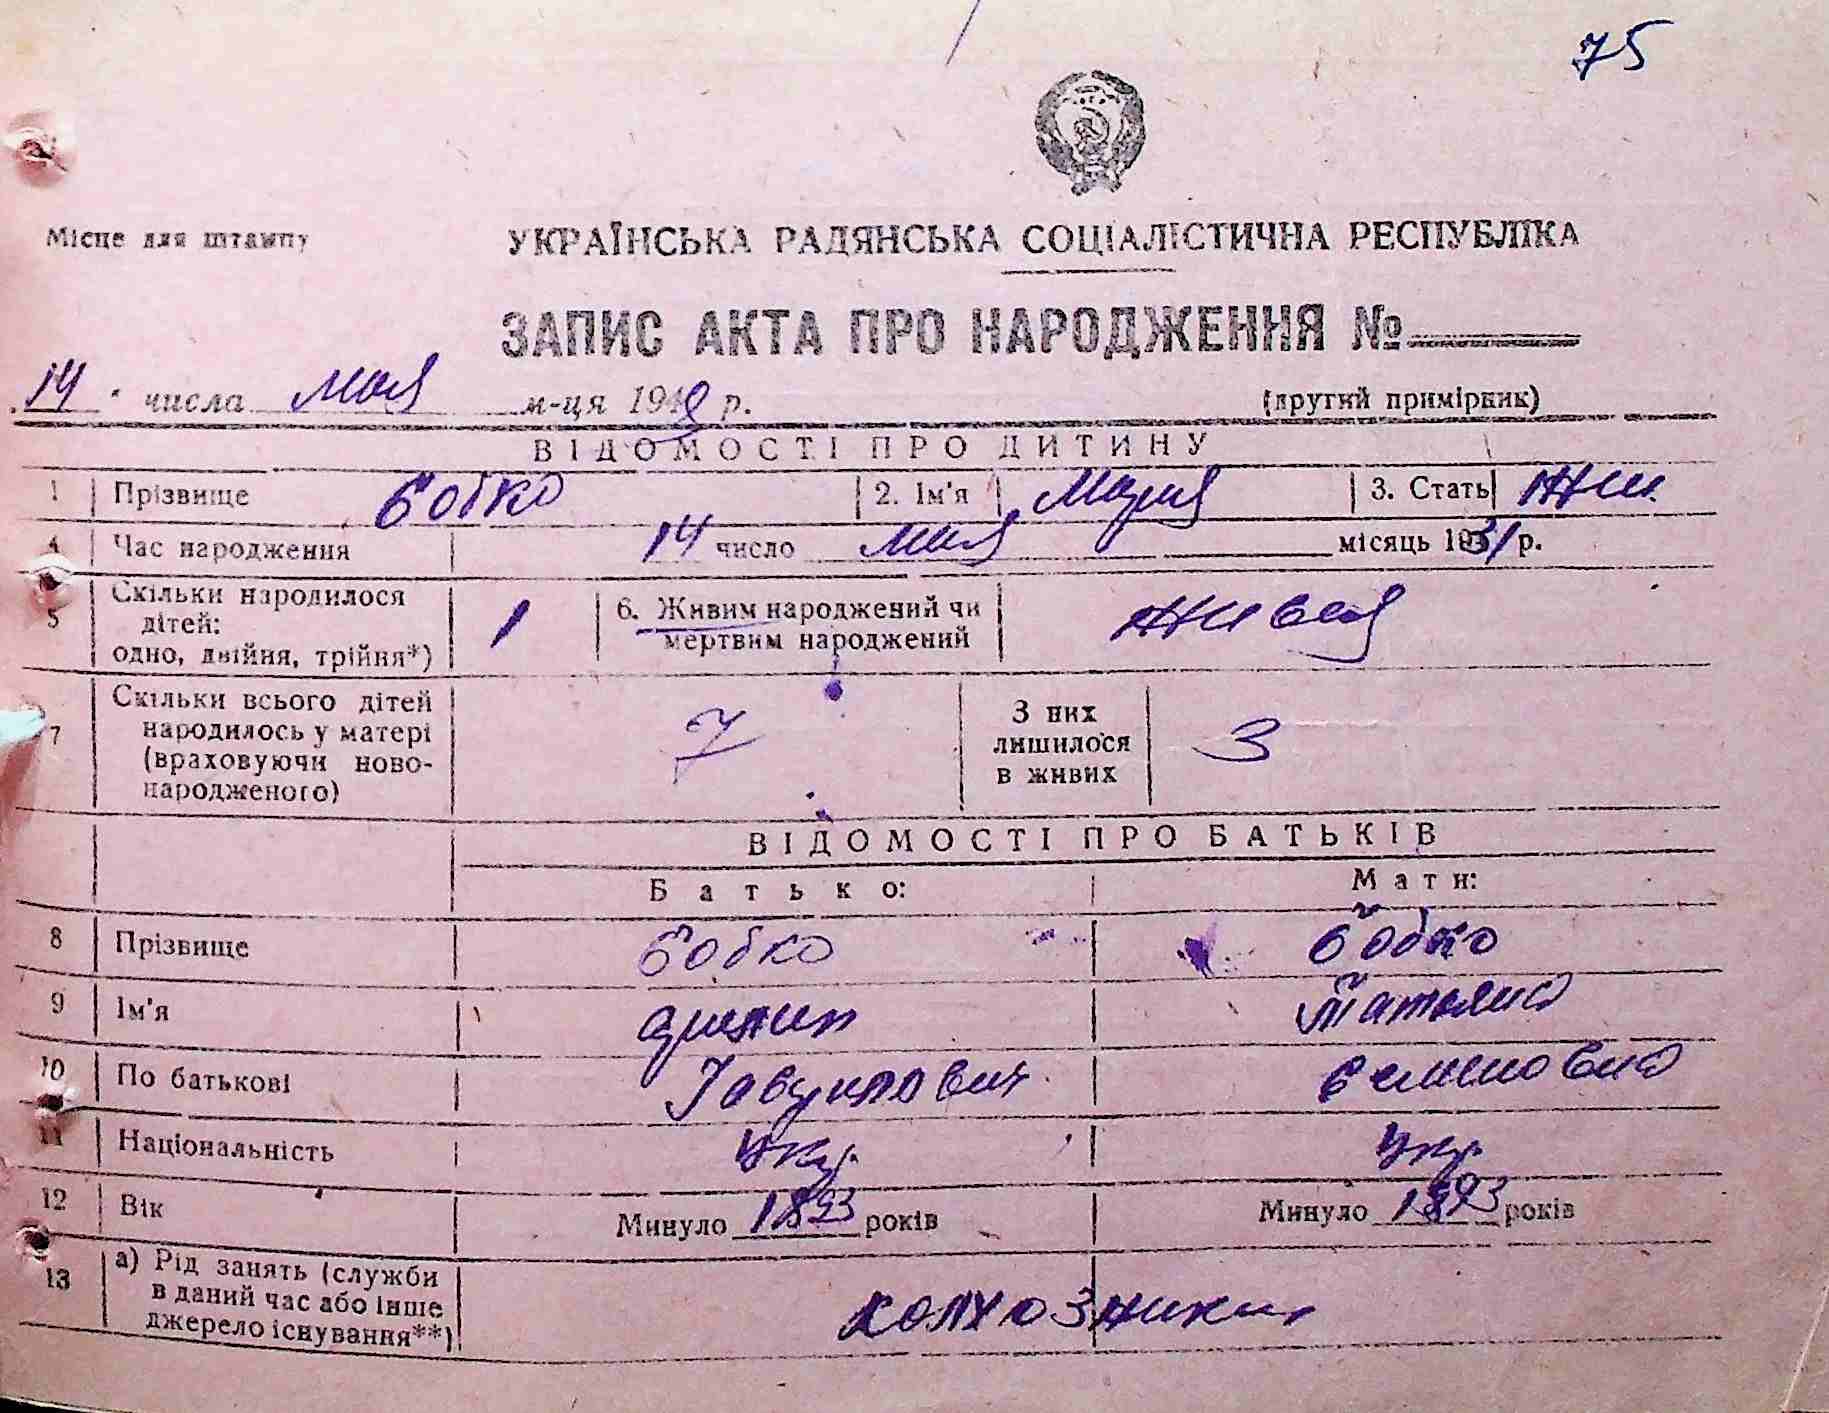 75
Місце для штампу
УКРАЇНСЬКА РАДЯНСЬКА СОЦІАЛІСТИЧНА РЕСПУБЛІКА
ЗАПИС АКТА ПРО НАРОДЖЕННЯ №
14 числа мая м-ця 1949 р.
(другий примірник)
ВІДОМОСТІ ПРО ДИТИНУ
1 Прізвище Бобко 2. Ім'я Мария 3. Стать жен.
4 Час народження 14 число мая місяць 1931 р.
5 Скільки народилося дітей: одно, двійня, трійня*) 1 6. Живим народжений чи мертвим народжений живая
7 Скільки всього дітей народилось у матері (враховуючи ново-народженого) 7 З них лишилося в живих 3
ВІДОМОСТІ ПРО БАТЬКІВ
Батько: Мати:
8 Прізвище Бобко Бобко
9 Ім'я Татьяна
10 По батькові Семеновна
11 Національність Укр. Укр.
12 Вік Минуло 1893 років Минуло 1893 років
13 а) Рід занять (служби в даний час або інше джерело існування**) колхозники